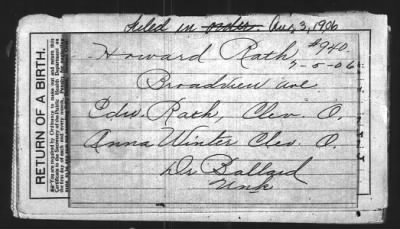 Filed in order. Aug 3, 1906
Howard Rath, #940
3-5-06
Broadview ave
Edw. Rath, Clev. O.
Anna Winter Clev. O.
Dr Ballard
Unk
RETURN OF A BIRTH.